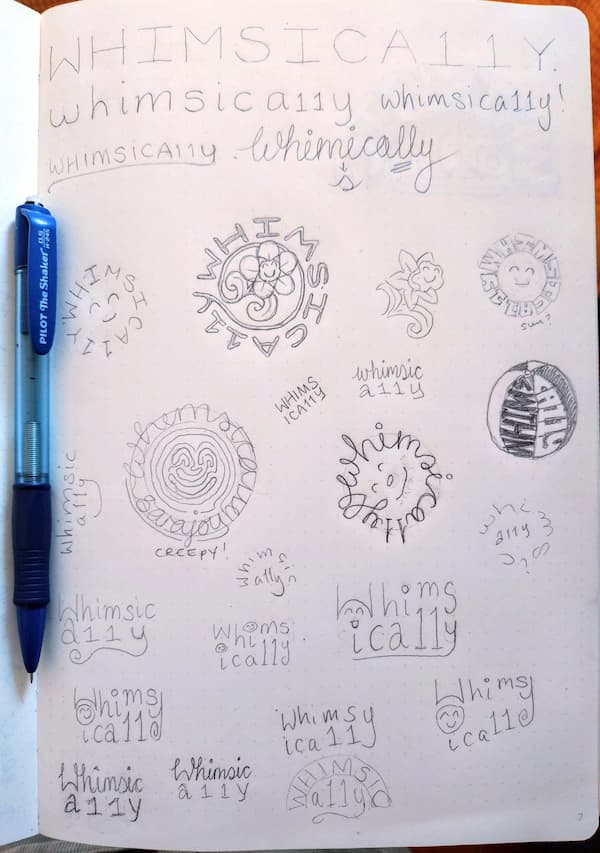 WHIMSICA11Y.
whimsica11y whimsica11y!
WHIMSICA11Y. Whimically
s
WHIMSICA11Y
WHIMSICA11Y
sun?
PILOT The Shaker
WHIMS
ICA11Y
whimsic
a11y
WHIMSICA11Y
whimsic
a11y
whimsica11y
CREEPY!
whimsic
a11y
whimsi
Whimsic
a11y
Whims
ica11y
Whims
ica11y
Whimsy
ica11y
Whimsy
ica11y
Whimsy
ica11
Whimsic
a11y
Whimsic
a11y
WHIMSIC
a11y
7